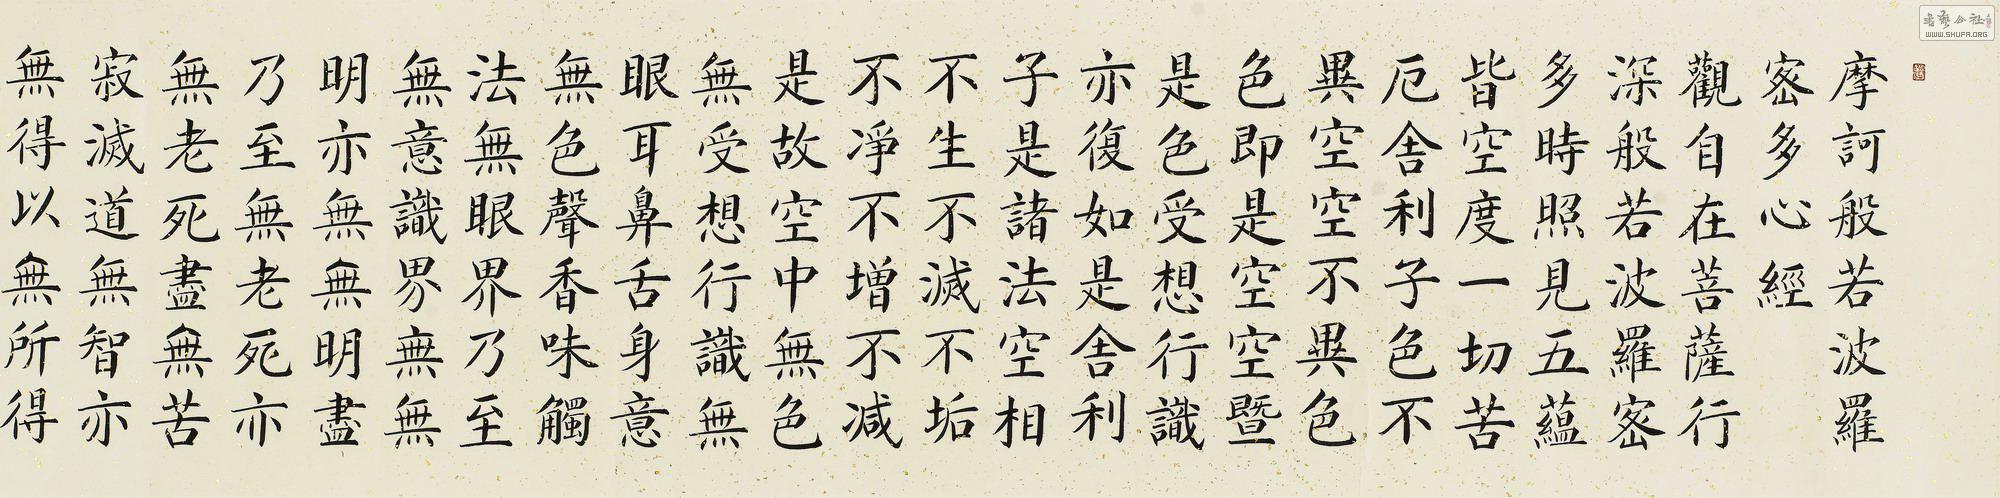 摩訶般若波羅
密多心經
觀自在菩薩行
深般若波羅密
多時照見五蘊
皆空度一切苦
厄舍利子色不
異空空不異色
色即是空空暨
是色受想行識
亦復如是舍利
子是諸法空相
不生不滅不垢
不淨不增不減
是故空中無色
無受想行識無
眼耳鼻舌身意
無色聲香味觸
法無眼界乃至
無意識界無無
明亦無無明盡
乃至無老死亦
無老死盡無苦
寂滅道無智亦
無得以無所得
WWW.SHUFA.ORG